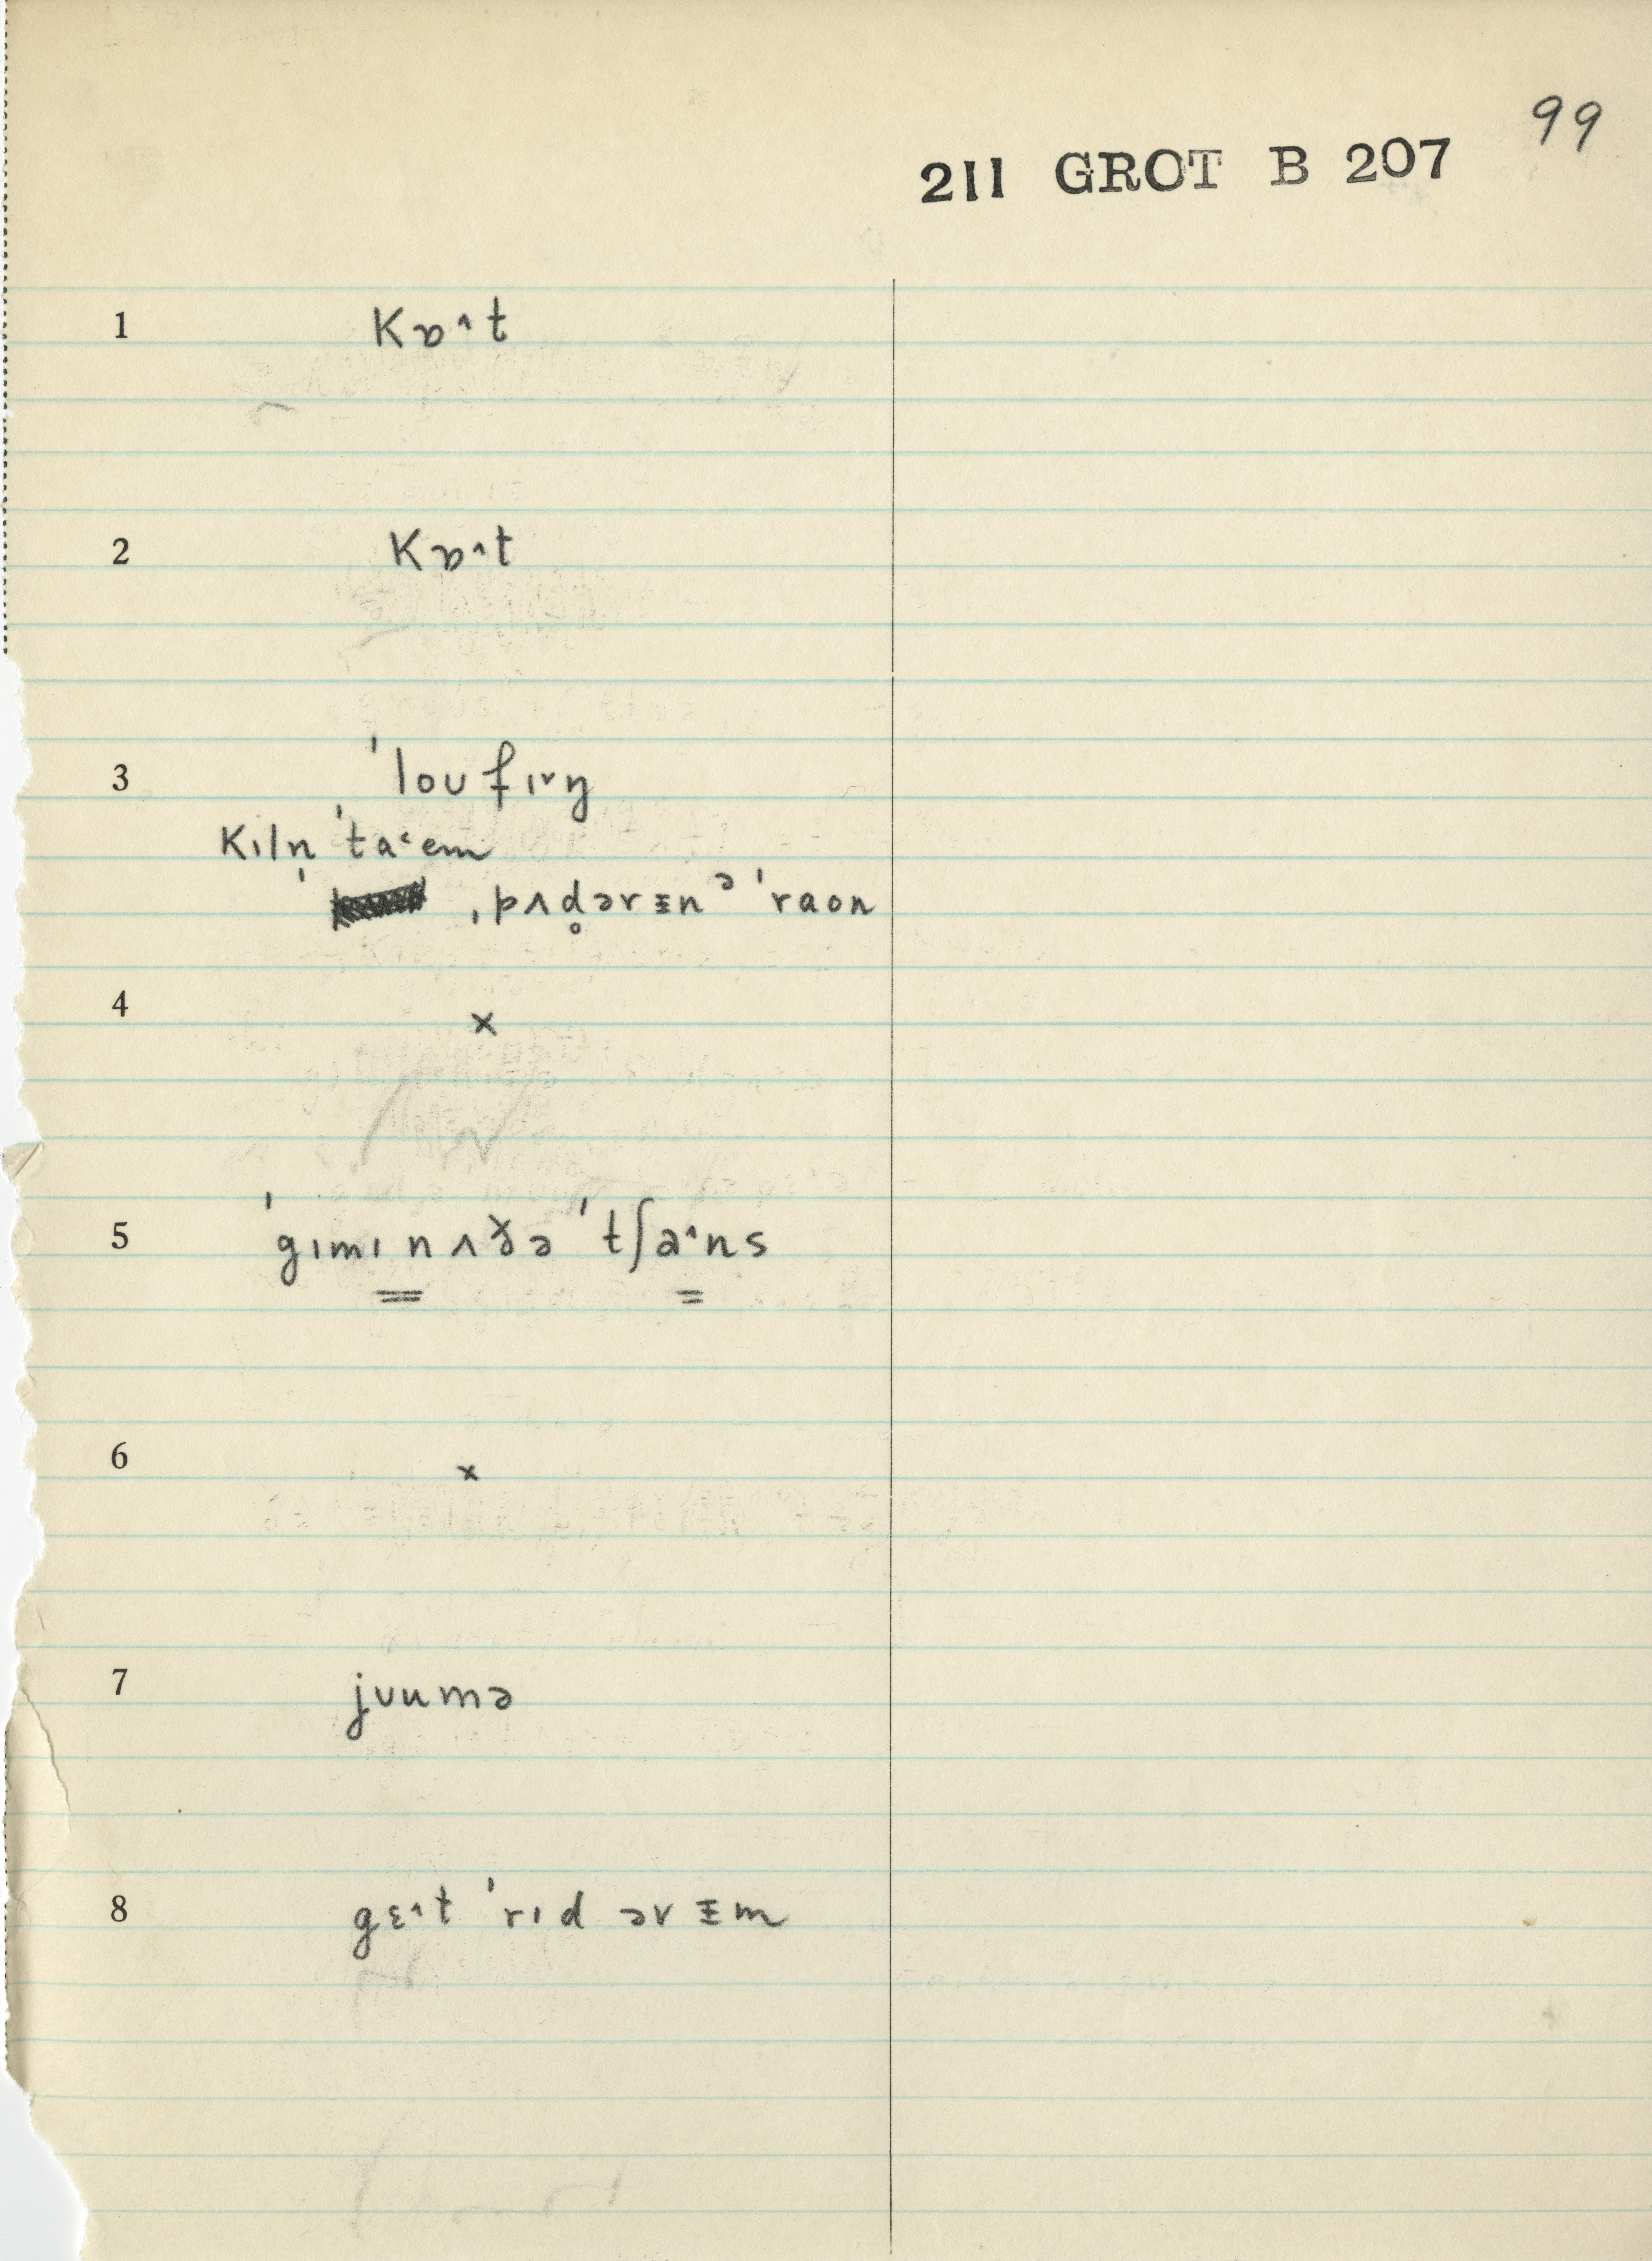 99
211 GROT B 207
1 kɒ˄t
2 kɒ˄t
3 ˈloʊfɪ˅ŋ
kɪln̩ ˈta˂em
ˌpʌd̥ərᵻnᵊ ˈraon
4 ×
5 ˈgɪmɪnʌðə ˈtʃa˄ns
6 ×
7 jʊumə
8 gɛ˄t ˈrɪd ərᵻm